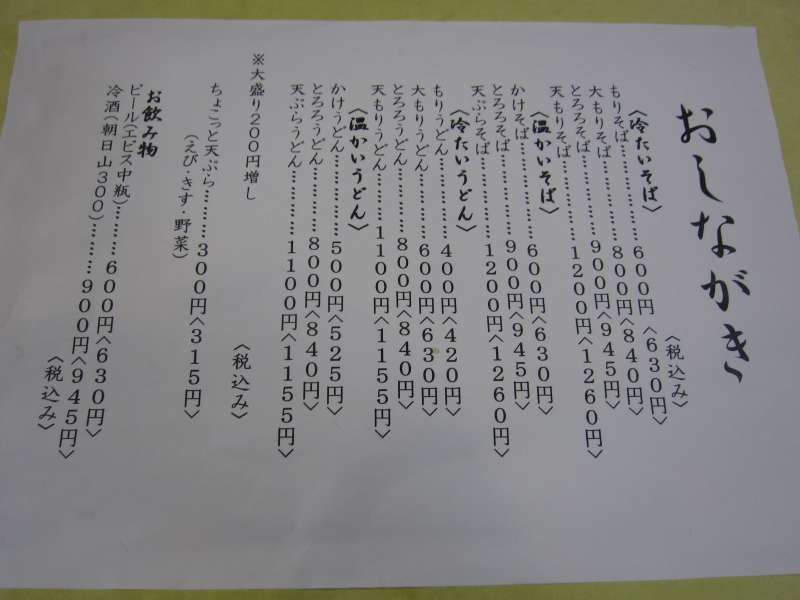 おしながき
〈税込み〉
〈冷たいそば〉
もりそば…………………６００円〈６３０円〉
大もりそば………………８００円〈８４０円〉
とろろそば………………９００円〈９４５円〉
天もりそば………………１２００円〈１２６０円〉
〈温かいそば〉
かけそば…………………６００円〈６３０円〉
とろろそば………………９００円〈９４５円〉
天ぷらそば………………１２００円〈１２６０円〉
〈冷たいうどん〉
もりうどん………………４００円〈４２０円〉
大もりうどん……………６００円〈６３０円〉
とろろうどん……………８００円〈８４０円〉
天もりうどん……………１１００円〈１１５５円〉
〈温かいうどん〉
かけうどん………………５００円〈５２５円〉
とろろうどん……………８００円〈８４０円〉
天ぷらうどん……………１１００円〈１１５５円〉
※大盛り２００円増し
〈税込み〉
ちょこっと天ぷら………３００円〈３１５円〉
（えび・きす・野菜）
お飲み物
ビール（エビス中瓶）………６００円〈６３０円〉
冷酒（朝日山３００）………９００円〈９４５円〉
〈税込み〉